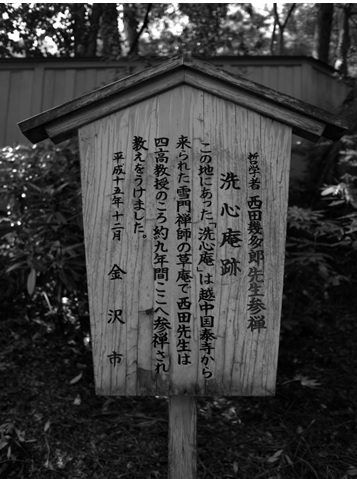 哲学者 西田幾多郎先生参禅
洗心庵跡
この地にあった「洗心庵」は越中国泰寺から
来られた雪門禅師の草庵で西田先生は
四高教授のころ約九年間ここへ参禅され
教えをうけました。
平成十五年十二月 金沢市